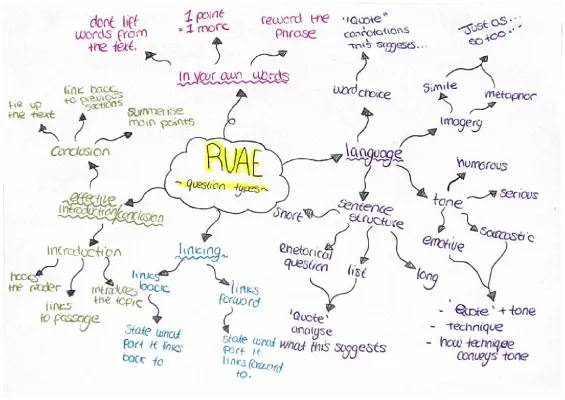 RUAE
~question types~
In your own words
dont lift
words from
the text.
1 point
= 1 mark
reword the
phrase
language
word choice
"Quote"
connotations
this suggests...
Imagery
Simile
metaphor
Just as...
so too...
tone
humorous
serious
sarcastic
emotive
- 'Quote' + tone
- technique
- how technique
conveys tone
sentence
structure
short
Rhetorical
question
list
long
'Quote'
analyse
what this suggests
linking
links
back
State what
part it links
back to
links
forward
state what
part it
links forward
to.
effective
introduction/conclusion
Conclusion
tie up
the text
link back
to previous
sections
summerise
main points
Introduction
hooks
the reader
links
to passage
introduces
the topic